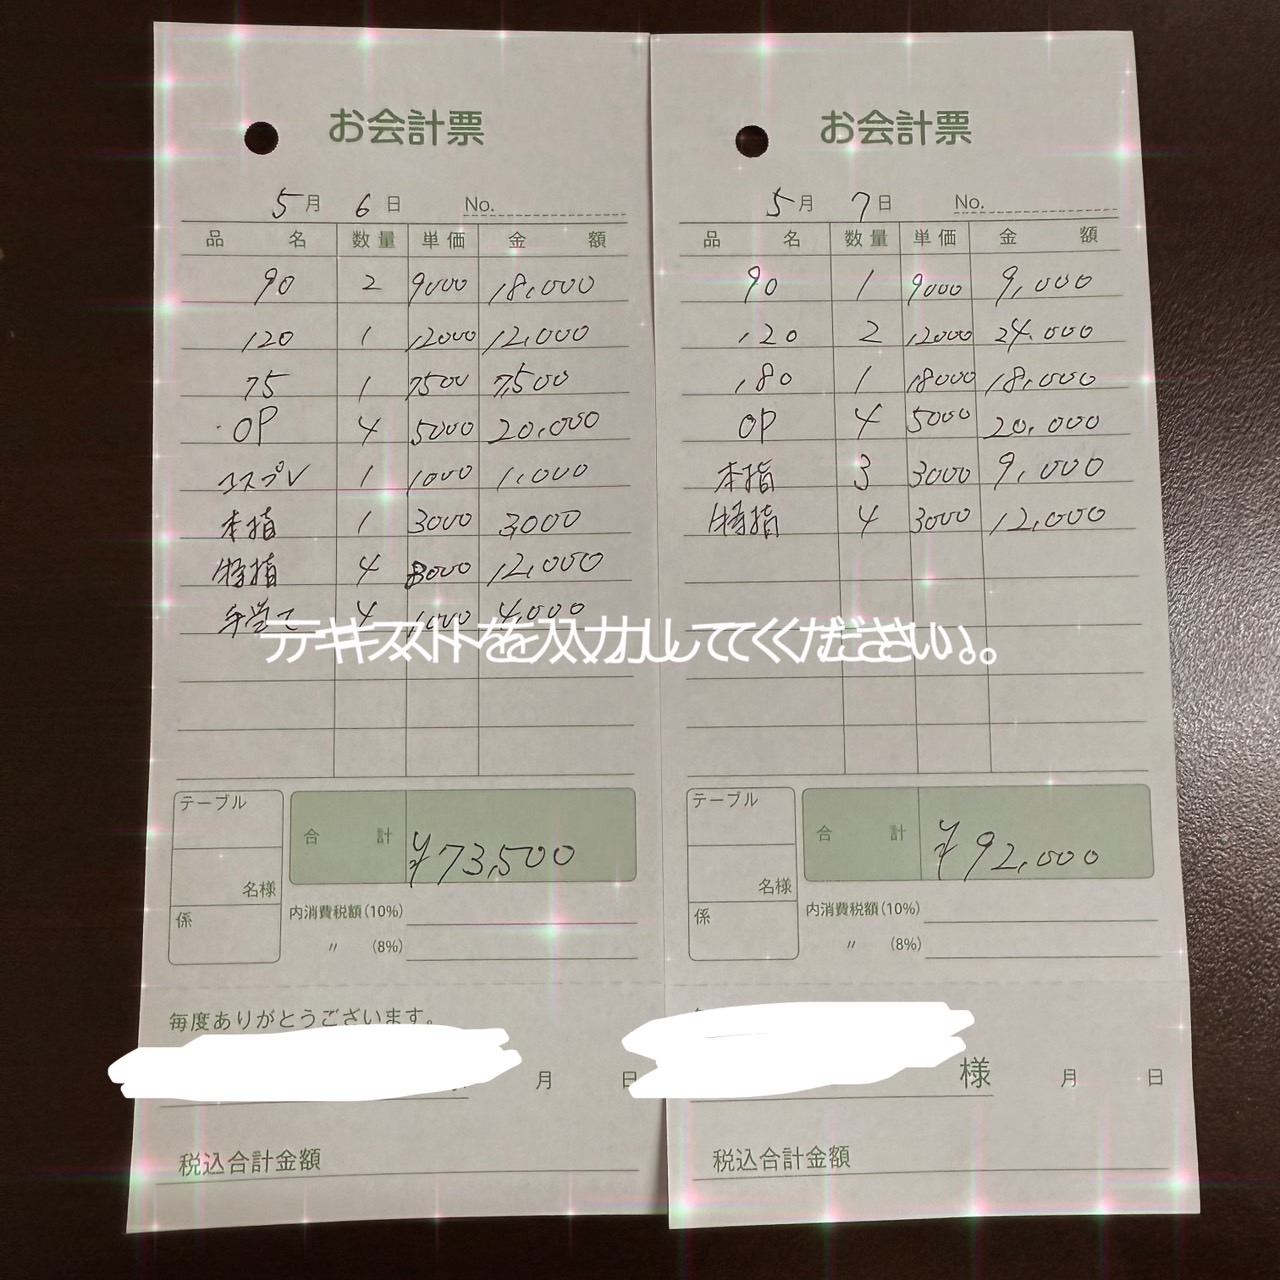 お会計票
5月 6日 No.
品名 数量 単価 金額
90 2 9000 18,000
120 1 12000 12,000
75 1 7500 7,500
OP 4 5000 20,000
コスプレ 1 1000 1,000
本指 1 3000 3000
特指 4 3000 12,000
手当て 4 1000 4,000
合計 ¥73,500
テーブル
名様
係
内消費税額(10%)
〃 (8%)
毎度ありがとうございます。
月 日
税込合計金額
お会計票
5月 7日 No.
品名 数量 単価 金額
90 1 9000 9,000
120 2 12000 24,000
180 1 18000 18,000
OP 4 5000 20,000
本指 3 3000 9,000
特指 4 3000 12,000
合計 ¥92,000
テーブル
名様
係
内消費税額(10%)
〃 (8%)
様 月 日
税込合計金額
テキストを入力してください。